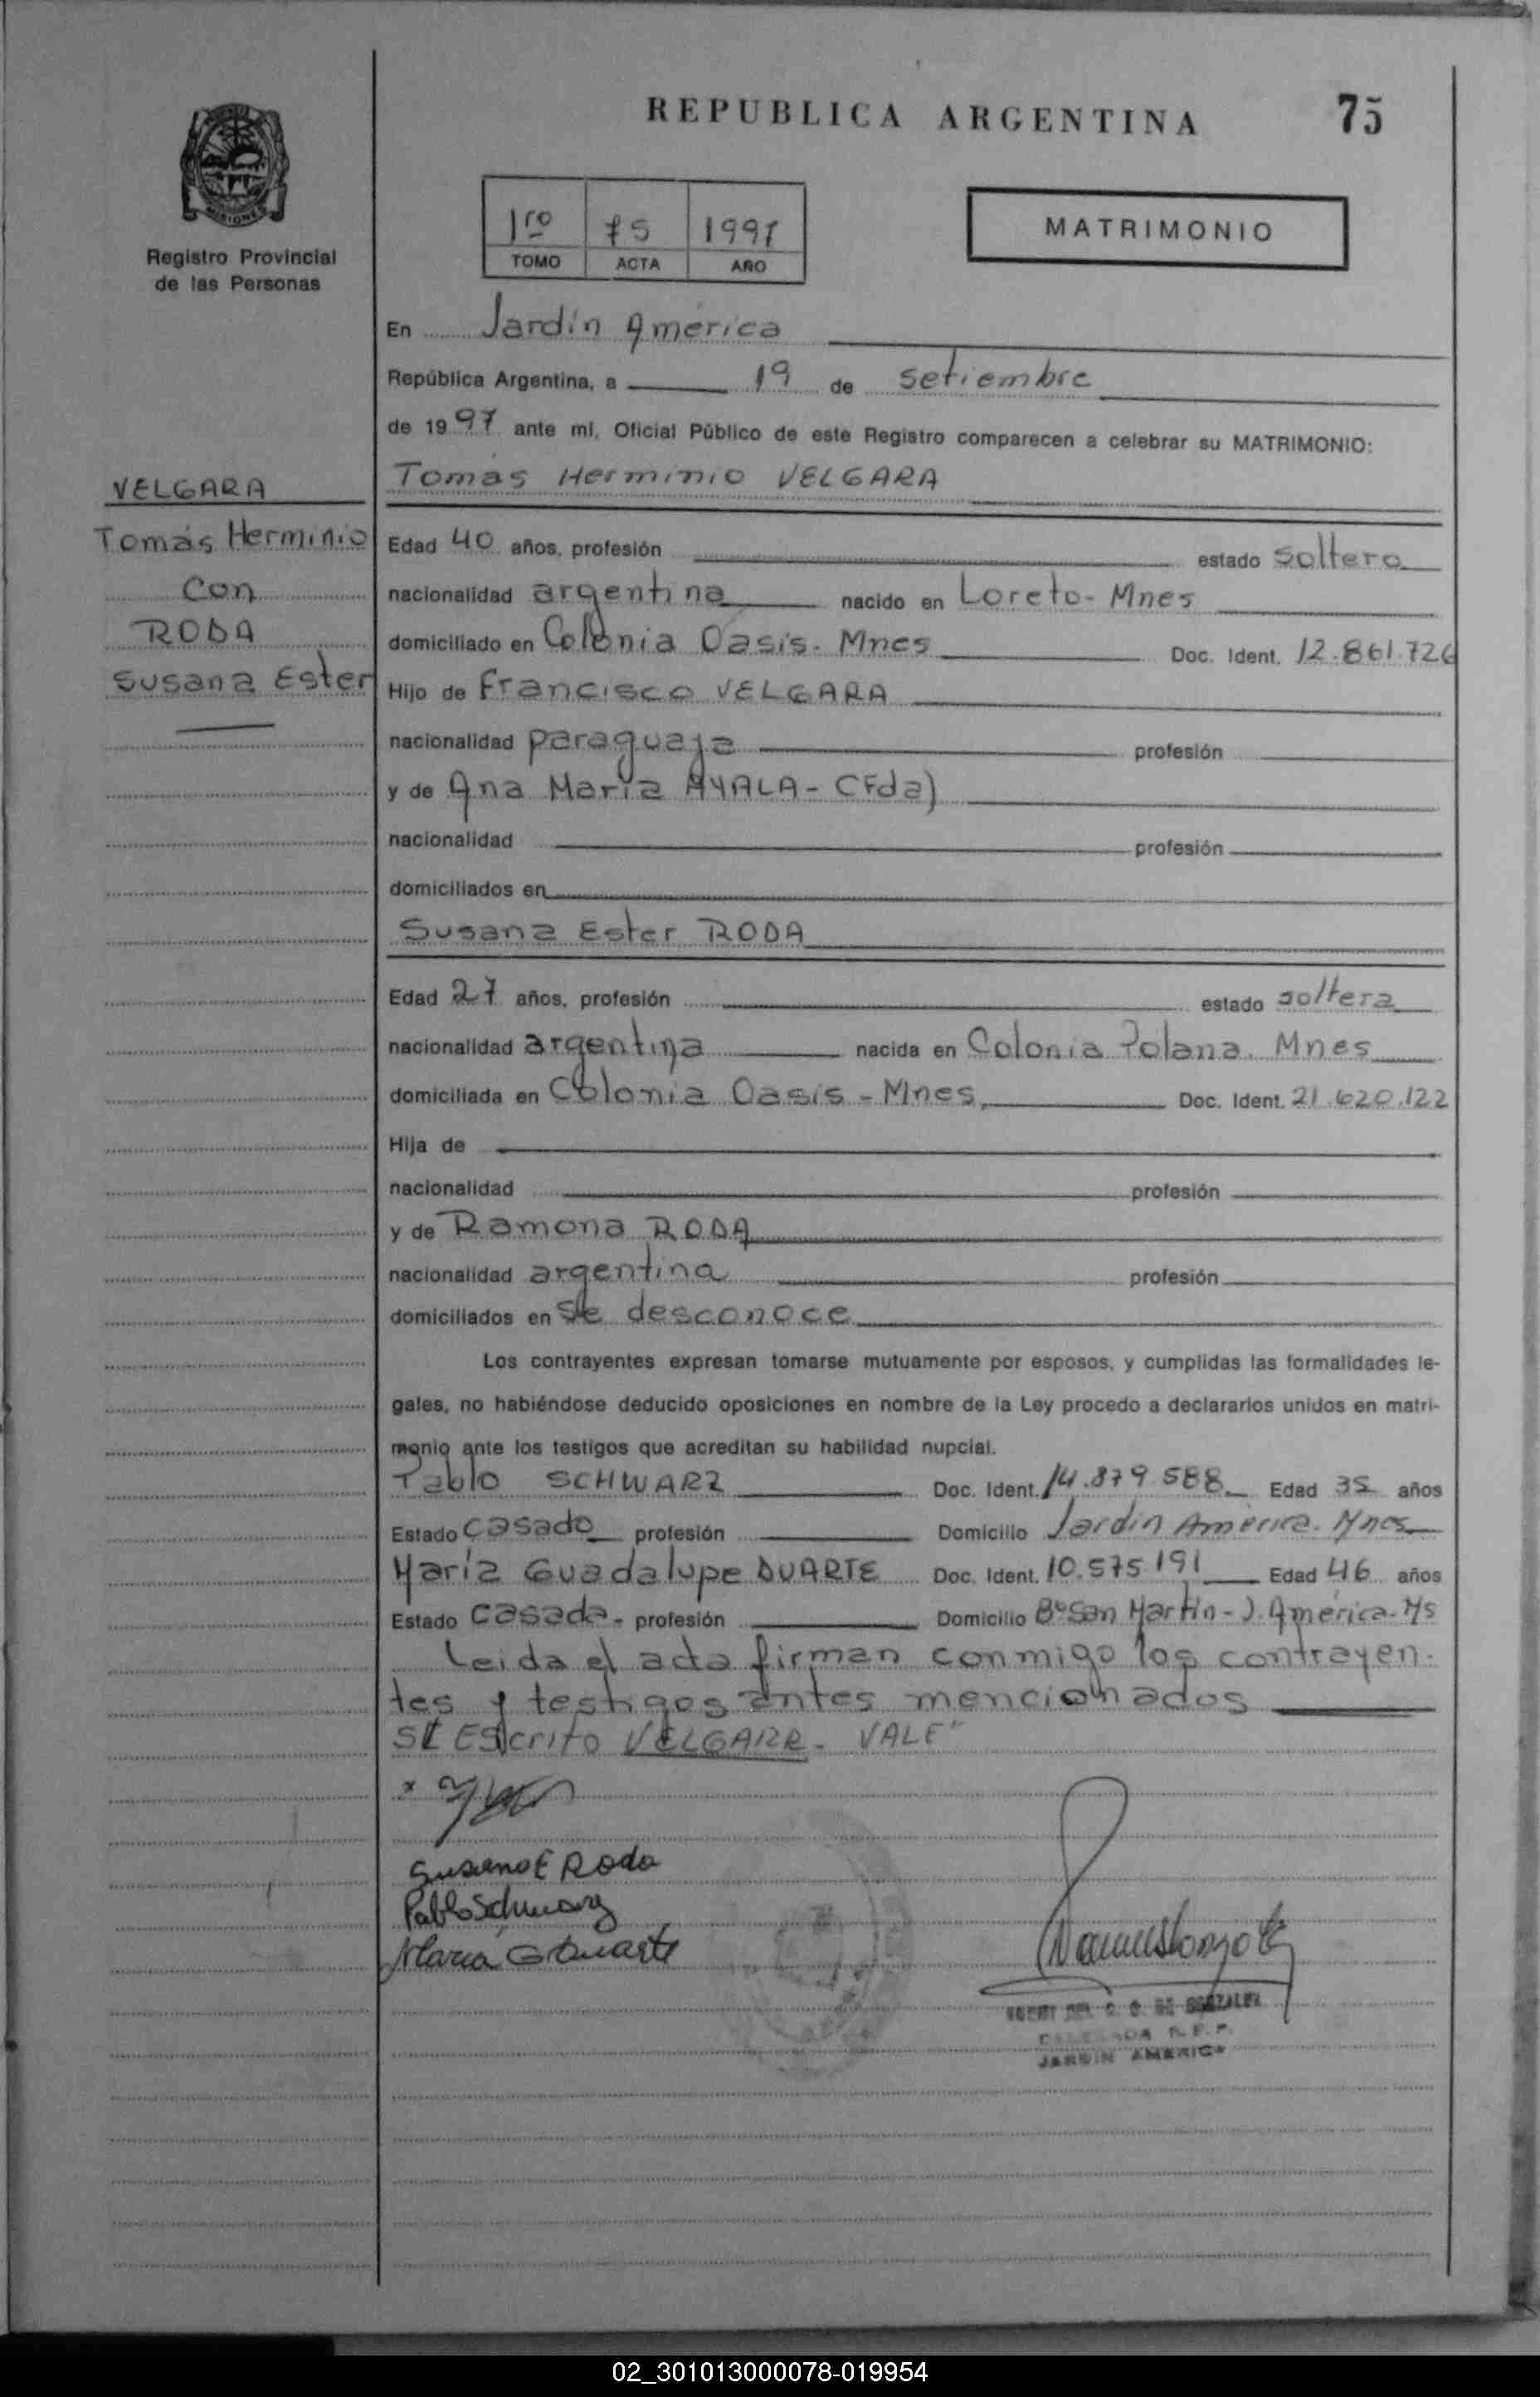 REPUBLICA ARGENTINA
75
MISIONES
Registro Provincial
de las Personas
1ro 75 1997
TOMO ACTA AÑO
MATRIMONIO
En Jardín América
República Argentina, a 19 de setiembre
de 1997 ante mí, Oficial Público de este Registro comparecen a celebrar su MATRIMONIO:
Tomás Herminio VELGARA
VELGARA
Tomás Herminio
con
RODA
Susana Ester
Edad 40 años, profesión estado soltero
nacionalidad argentina nacido en Loreto- Mnes
domiciliado en Colonia Oasis. Mnes Doc. Ident. 12.861.726
Hijo de Francisco VELGARA
nacionalidad paraguaya profesión
y de Ana María AYALA- (Fda)
nacionalidad profesión
domiciliados en
Susana Ester RODA
Edad 27 años, profesión estado soltera
nacionalidad argentina nacida en Colonia Polana. Mnes
domiciliada en Colonia Oasis - Mnes. Doc. Ident. 21.620.122
Hija de
nacionalidad profesión
y de Ramona RODA
nacionalidad argentina profesión
domiciliados en se desconoce
Los contrayentes expresan tomarse mutuamente por esposos, y cumplidas las formalidades le-
gales, no habiéndose deducido oposiciones en nombre de la Ley procedo a declararlos unidos en matri-
monio ante los testigos que acreditan su habilidad nupcial.
Pablo SCHWARZ Doc. Ident. 14.879.588 Edad 35 años
Estado casado profesión Domicilio Jardín América. Mnes
María Guadalupe DUARTE Doc. Ident. 10.575.191 Edad 46 años
Estado casada- profesión Domicilio Bº San Martín - J. América- Ms
Leida el acta firman conmigo los contrayen-
tes y testigos antes mencionados
Escrito VELGARA - VALE"
Susana E Roda
Pablo Schwarz
María G Duarte
DE GONZALEZ
DELEGADA R. P. P.
JARDIN AMERICA
02_301013000078-019954